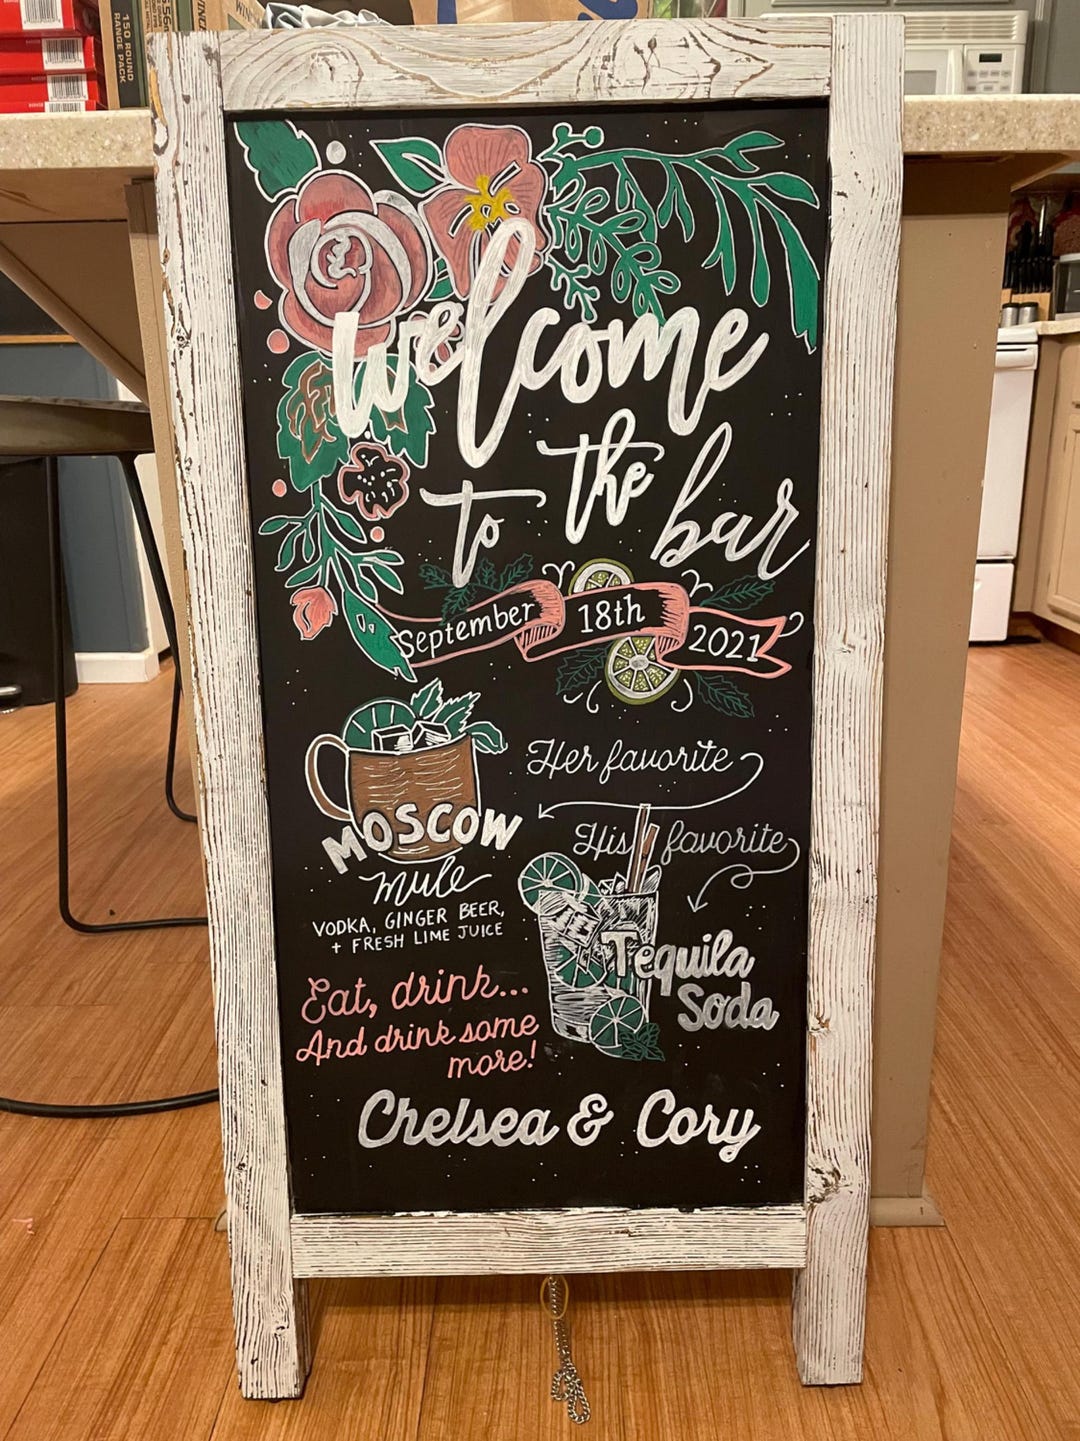 150 ROUND
RANGE PACK
welcome
to the bar
September 18th 2021
Her favorite
MOSCOW
mule
VODKA, GINGER BEER,
+ FRESH LIME JUICE
His favorite
Tequila
Soda
Eat, drink...
And drink some
more!
Chelsea & Cory